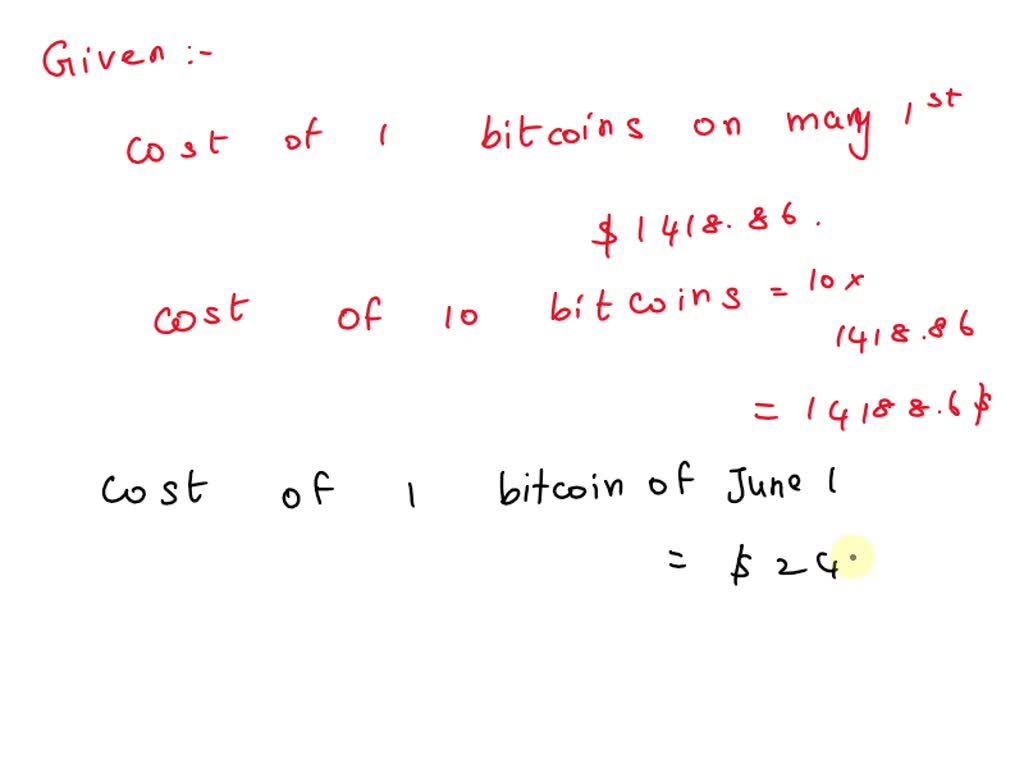 Given :-
cost of 1 bitcoins on many 1st
$1418.86.
cost of 10 bitcoins = 10 x
1418.86
= 14188.6 $
cost of 1 bitcoin of June 1
= $ 24